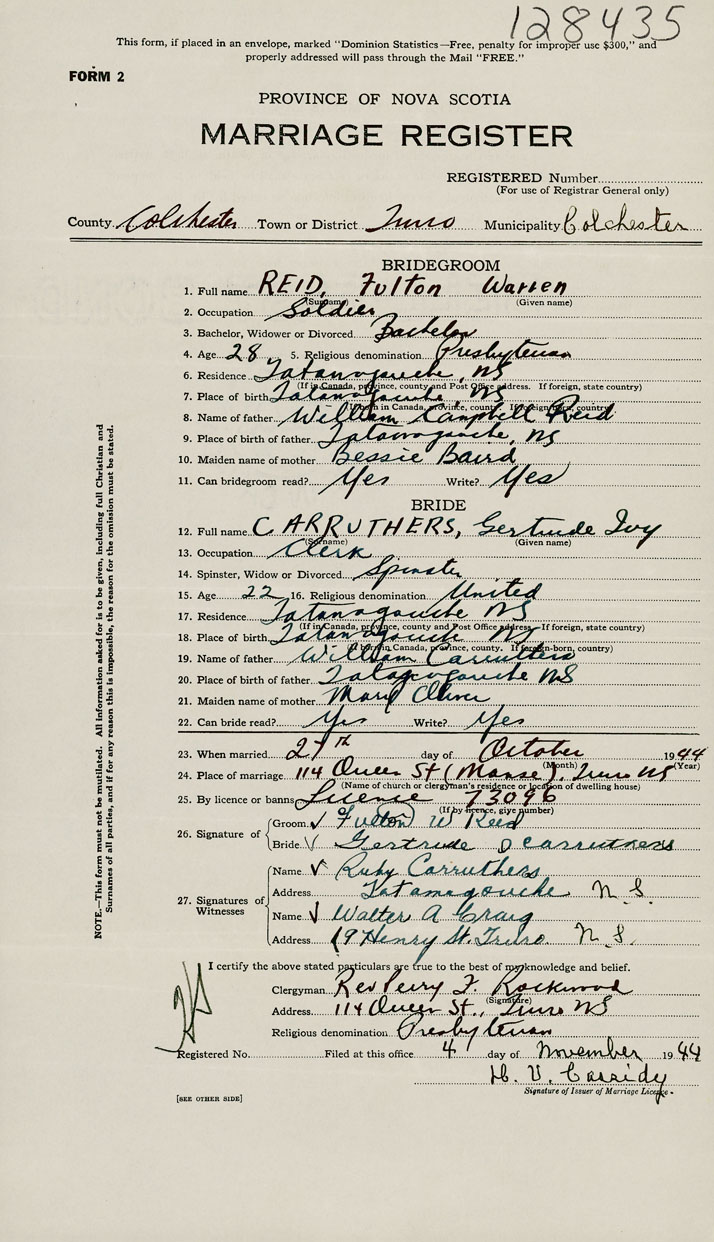 128435
This form, if placed in an envelope, marked "Dominion Statistics—Free, penalty for improper use $300," and
properly addressed will pass through the Mail "FREE."
FORM 2
PROVINCE OF NOVA SCOTIA
MARRIAGE REGISTER
REGISTERED Number
(For use of Registrar General only)
County Colchester Town or District Truro Municipality Colchester
BRIDEGROOM
1. Full name REID, Fulton Warren
(Surname) (Given name)
2. Occupation Soldier
3. Bachelor, Widower or Divorced Bachelor
4. Age 28 5. Religious denomination Presbyterian
6. Residence Tatamagouche, NS
(If in Canada, province, county and Post Office address. If foreign, state country)
7. Place of birth Tatamagouche, NS
(If born in Canada, province, county. If foreign-born, country)
8. Name of father William Campbell Reid
9. Place of birth of father Tatamagouche, NS
10. Maiden name of mother Bessie Baird
11. Can bridegroom read? Yes Write? Yes
BRIDE
12. Full name CARRUTHERS, Gertrude Ivy
(Surname) (Given name)
13. Occupation Clerk
14. Spinster, Widow or Divorced Spinster
15. Age 22 16. Religious denomination United
17. Residence Tatamagouche NS
(If in Canada, province, county and Post Office address. If foreign, state country)
18. Place of birth Tatamagouche NS
(If born in Canada, province, county. If foreign-born, country)
19. Name of father William Carruthers
20. Place of birth of father Tatamagouche NS
21. Maiden name of mother Mary Oliver
22. Can bride read? Yes Write? Yes
23. When married 27th day of October 1944
(Month) (Year)
24. Place of marriage 114 Queen St (Manse), Truro NS
(Name of church or clergyman's residence or location of dwelling house)
25. By licence or banns Licence 73096
(If by licence, give number)
26. Signature of
Groom Fulton W Reid
Bride Gertrude I Carruthers
27. Signatures of Witnesses
Name Ruby Carruthers
Address Tatamagouche N.S.
Name Walter A Craig
Address 19 Henry St. Truro. N.S.
I certify the above stated particulars are true to the best of my knowledge and belief.
Clergyman Rev Perry F. Rockwood
(Signature)
Address 114 Queen St., Truro NS
Religious denomination Presbyterian
Registered No. Filed at this office 4 day of November 1944
H. V. Cassidy
Signature of Issuer of Marriage Licence
[SEE OTHER SIDE]
NOTE.—This form must not be mutilated. All information asked for is to be given, including full Christian and
Surnames of all parties, and if for any reason this is impossible, the reason for the omission must be stated.